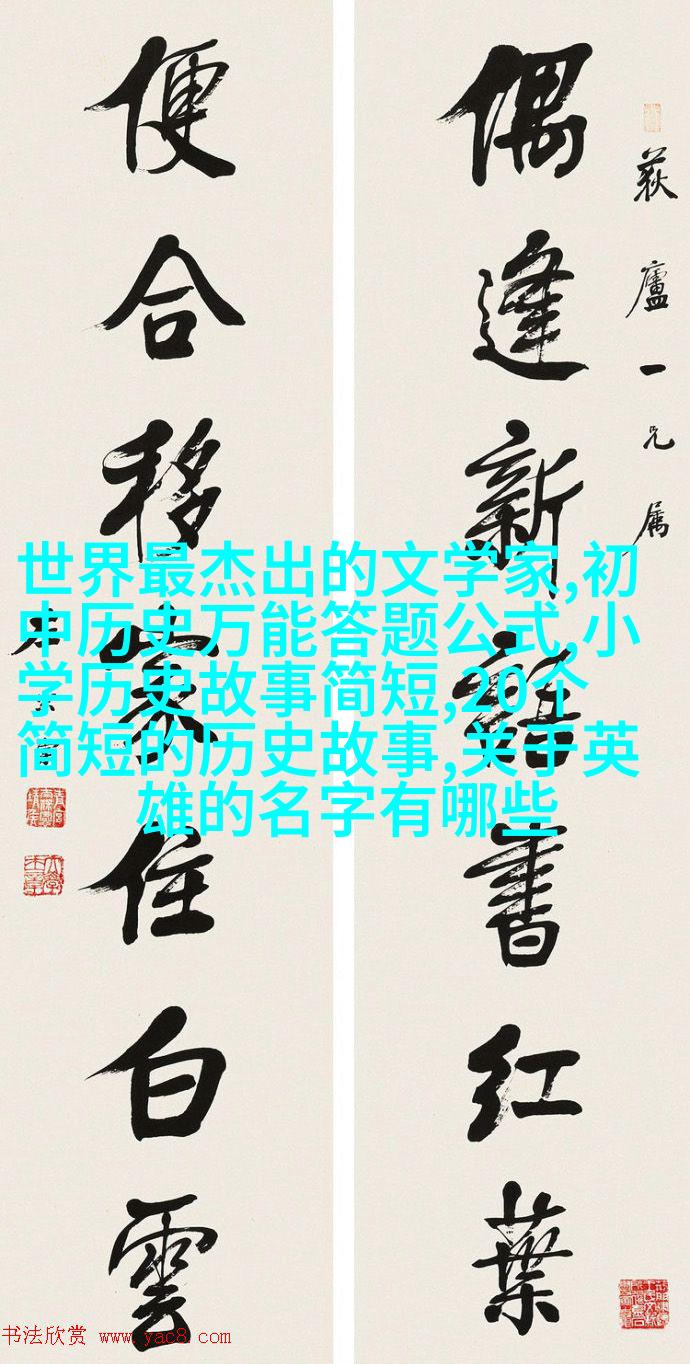 荻廬一兄属
偶逢新語書红葉
便合移家住白雲
世界最杰出的文学家,初
中历史万能答题公式,小
学历史故事简短,20个
简短的历史故事,关于英
雄的名字有哪些
书法欣赏 www.yac8.com